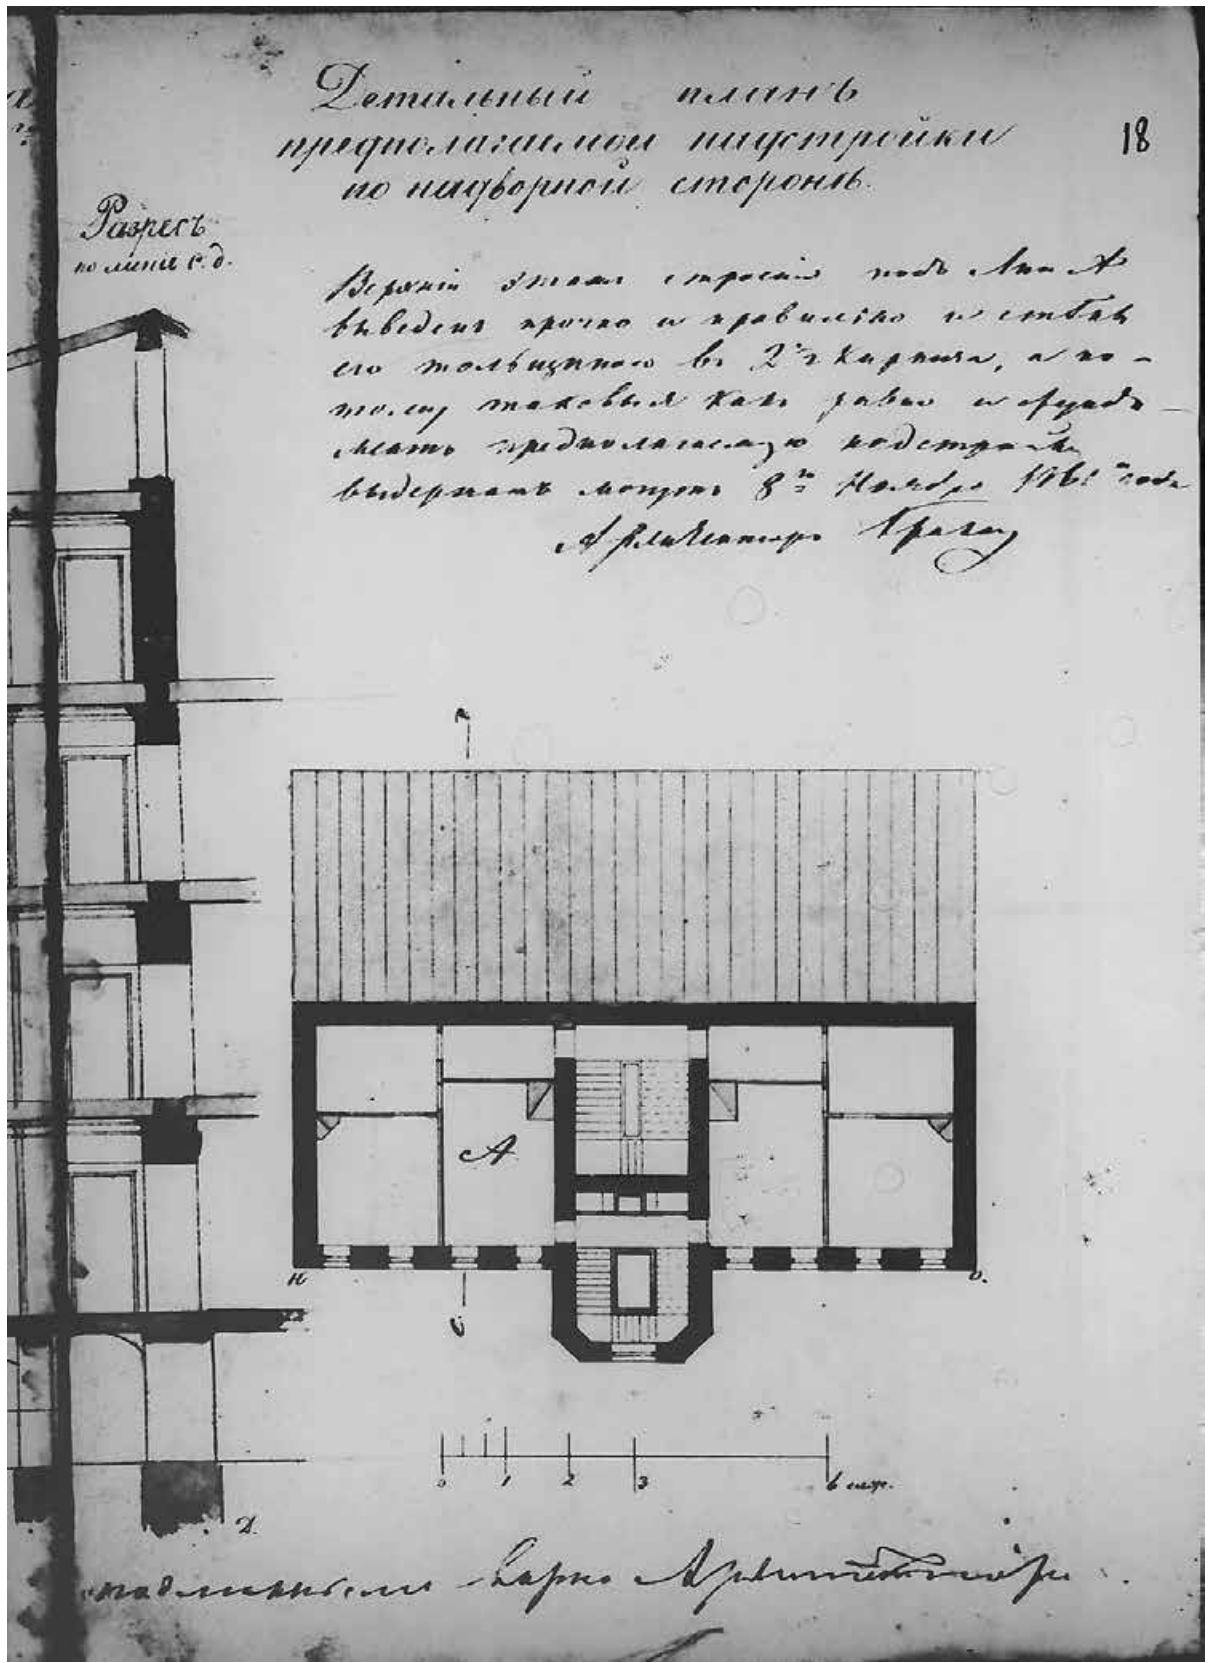 Детальный планъ
предполагаемой надстройки
по надворной сторонѣ.
18
Разрезъ
по линіи с. д.
Верхній этажъ строенія подъ Лит. А
выведенъ прочно и правильно и стѣны
его толщиною въ 2 кирпича, а по-
тому таковыя какъ равно и фунда-
ментъ предполагаемую надстройку
выдержать могутъ 8го Ноября 1861 года
Архитекторъ
А
Н
О.
С
0 1 2 3 6 саж.
Д.
вѣрно Архитекторъ